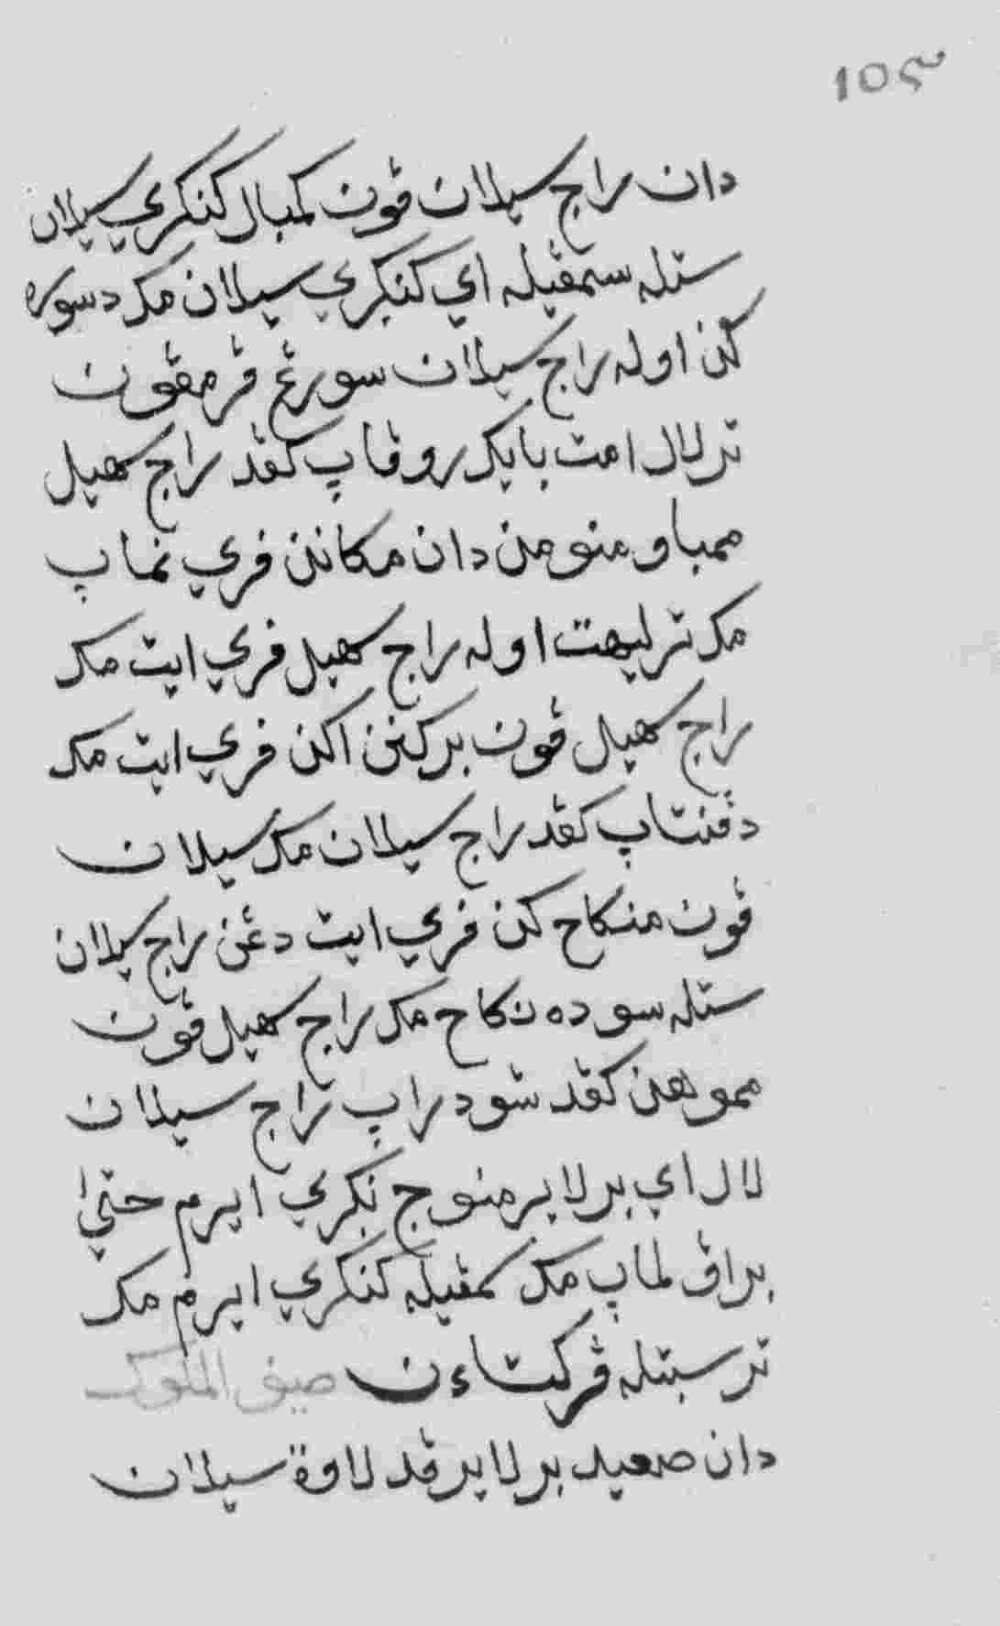 ١٥٣
دان راج سيلان ڤون كمبال كنكري سيلان
ستله سمڤيله اي كنكري سيلان مك دسوره
كن اوله راج سيلان سورغ ڤرمڤون
ترلال امت بايک روڤاڽ كڤد راج كهيل
ممباو منومن دان مكانن فري نماڽ
مک ترليهت اوله راج كهيل فري ايت مک
راج كهيل ڤون بركنن اكن فري ايت مک
دڤنتاڽ كڤد راج سيلان مک سيلان
ڤون منكاح كن فري ايت دغن راج سيلان
ستله سوده نكاح مک راج كهيل ڤون
مموهن كڤد سودراڽ راج سيلان
لال اي برلاير منوج نكري ايرم حتىٰ
براڤ لماڽ مک سمڤيله كنكري ايرم مک
ترسبتله ڤركتاءن صيف الملوک
دان صعيد برلاير ڤد لاوة سيلان